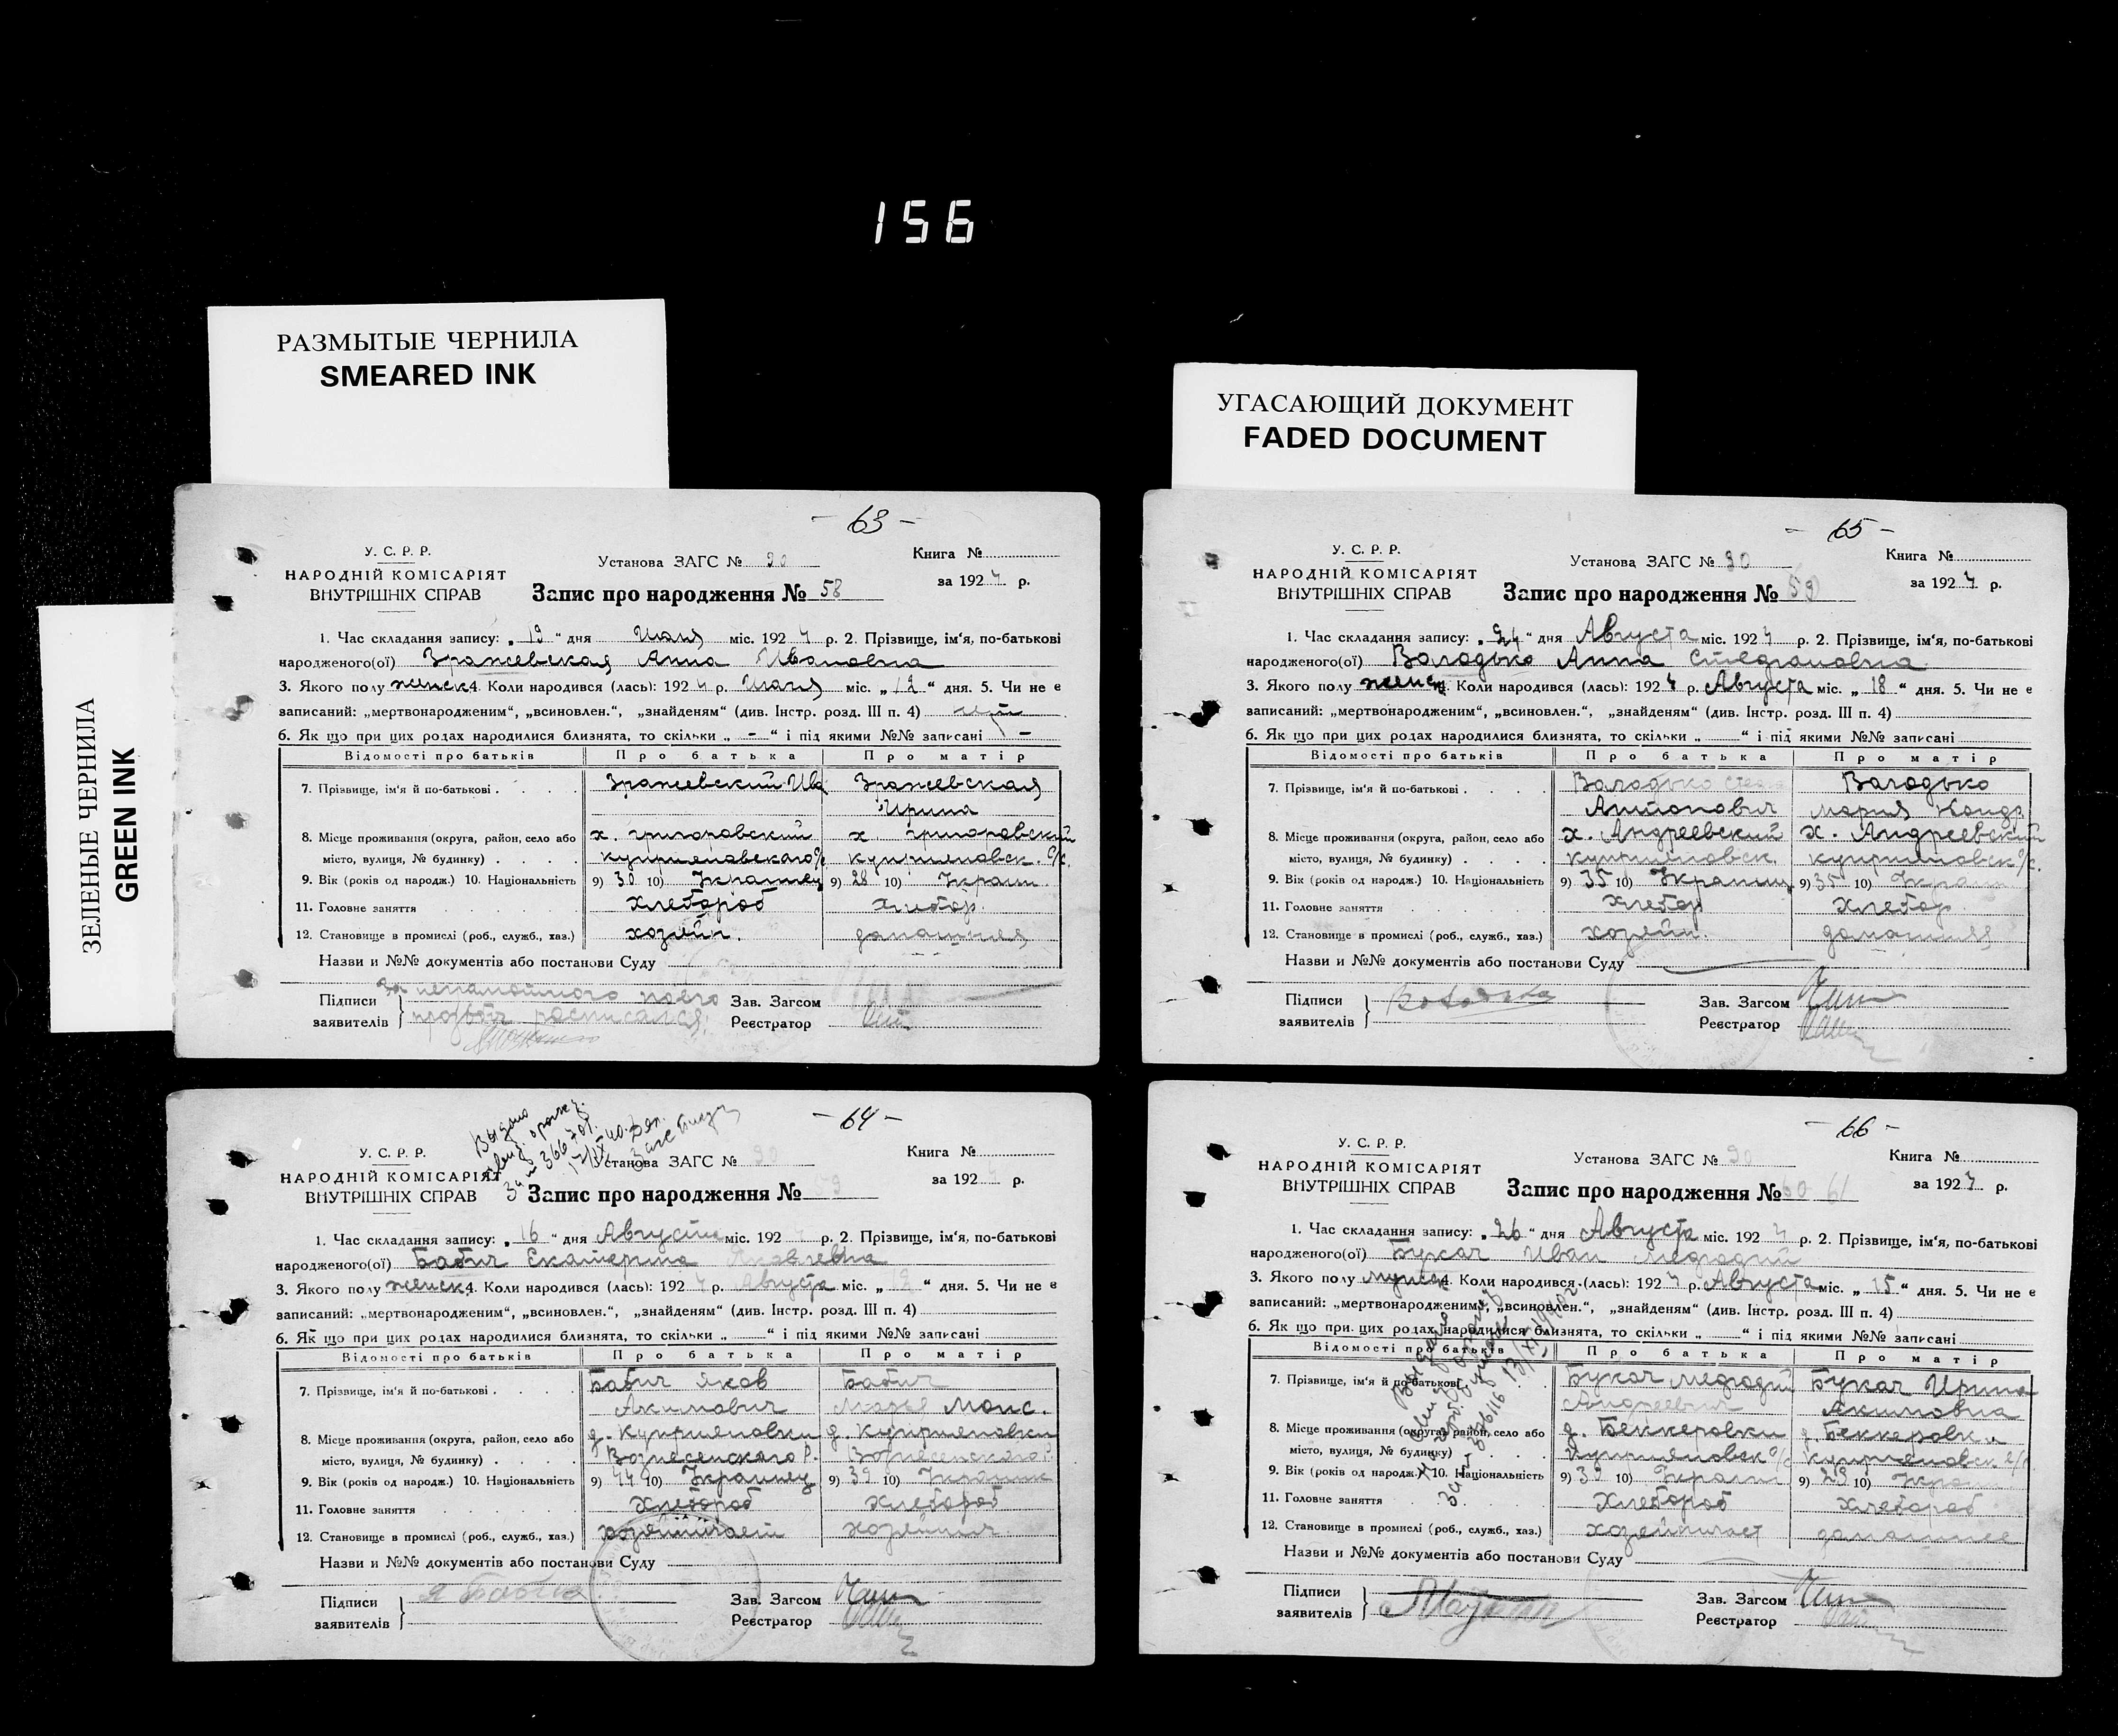 156
РАЗМЫТЫЕ ЧЕРНИЛА
SMEARED INK
ЗЕЛЕНЫЕ ЧЕРНИЛА
GREEN INK
- 63 -
У. С. Р. Р.
НАРОДНІЙ КОМІСАРІЯТ
ВНУТРІШНІХ СПРАВ
Установа ЗАГС № 90
Книга №
за 1927 р.
Запис про народження № 58
1. Час складання запису: „19“ дня Июля міс. 1927 р. 2. Прізвище, ім'я, по-батькові
народженого(ої) Зражевская Анна Ивановна
3. Якого полу женск 4. Коли народився (лась): 1927 р. Июля міс. „12“ дня. 5. Чи не є
записаний: „мертвонародженим“, „всиновлен.“, „знайденям“ (див. Інстр. розд. III п. 4) нет
6. Як що при цих родах народилися близнята, то скільки „-“ і під якими №№ записані -
Відомості про батьків Про батька Про матір
7. Прізвище, ім'я й по-батькові Зражевский Ива Зражевская
Ирина
8. Місце проживання (округа, район, село або х. Григоровский х. Григоровский
місто, вулиця, № будинку) Куприяновского с/с Куприяновск. с/с.
9. Вік (років од народж.) 10. Національність 9) 30 10) Украинец 9) 28 10) Украин.
11. Головне заняття Хлебороб Хлебор.
12. Становище в промислі (роб., служб., хаз.) хозяин. домашняя
Назви и №№ документів або постанови Суду
Підписи за неграмотного по его Зав. Загсом
заявителів просьбе расписался Реєстратор
УГАСАЮЩИЙ ДОКУМЕНТ
FADED DOCUMENT
- 65 -
У. С. Р. Р.
НАРОДНІЙ КОМІСАРІЯТ
ВНУТРІШНІХ СПРАВ
Установа ЗАГС № 90
Книга №
за 1927 р.
Запис про народження № 59
1. Час складання запису: „24“ дня Августа міс. 1927 р. 2. Прізвище, ім'я, по-батькові
народженого(ої) Володько Анна Стефановна
3. Якого полу женск. 4. Коли народився (лась): 1927 р. Августа міс. „18“ дня. 5. Чи не є
записаний: „мертвонародженим“, „всиновлен.“, „знайденям“ (див. Інстр. розд. III п. 4)
6. Як що при цих родах народилися близнята, то скільки „ “ і під якими №№ записані
Відомості про батьків Про батька Про матір
7. Прізвище, ім'я й по-батькові Володько Стеф Володько
Антонович Мария Кондр.
8. Місце проживання (округа, район, село або х. Андреевский х. Андреевский
місто, вулиця, № будинку) Куприяновск. Куприяновск с/с.
9. Вік (років од народж.) 10. Національність 9) 35 10) Украинец 9) 35 10) Украин
11. Головне заняття Хлебор Хлебор.
12. Становище в промислі (роб., служб., хаз.) хозяин. домашняя
Назви и №№ документів або постанови Суду
Підписи Володько Зав. Загсом
заявителів Реєстратор
- 64 -
Выдано
У. С. Р. Р.
НАРОДНІЙ КОМІСАРІЯТ
ВНУТРІШНІХ СПРАВ
Установа ЗАГС № 90
Книга №
за 1927 р.
Запис про народження № 59
1. Час складання запису: „16“ дня Августа міс. 1927 р. 2. Прізвище, ім'я, по-батькові
народженого(ої) Бабич Екатерина Яковлевна
3. Якого полу женск. 4. Коли народився (лась): 1927 р. Августа міс. „12“ дня. 5. Чи не є
записаний: „мертвонародженим“, „всиновлен.“, „знайденям“ (див. Інстр. розд. III п. 4)
6. Як що при цих родах народилися близнята, то скільки „ “ і під якими №№ записані
Відомості про батьків Про батька Про матір
7. Прізвище, ім'я й по-батькові Бабич Яков Бабич
Акимович Марья Моис.
8. Місце проживання (округа, район, село або д. Куприяновки д. Куприяновки
місто, вулиця, № будинку) Вознесенского Р. Вознесенского Р.
9. Вік (років од народж.) 10. Національність 9) 44 10) Украинец 9) 39 10) Украинк
11. Головне заняття Хлебороб хлебороб
12. Становище в промислі (роб., служб., хаз.) хозяйничает
Назви и №№ документів або постанови Суду
Підписи Зав. Загсом
заявителів Реєстратор
- 66 -
У. С. Р. Р.
НАРОДНІЙ КОМІСАРІЯТ
ВНУТРІШНІХ СПРАВ
Установа ЗАГС № 90
Книга №
за 1927 р.
Запис про народження № 60 61
1. Час складання запису: „26“ дня Августа міс. 1927 р. 2. Прізвище, ім'я, по-батькові
народженого(ої) Букач Иван Мефодий
3. Якого полу мужск 4. Коли народився (лась): 1927 р. Августа міс. „15“ дня. 5. Чи не є
записаний: „мертвонародженим“, „всиновлен.“, „знайденям“ (див. Інстр. розд. III п. 4)
6. Як що при цих родах народилися близнята, то скільки „ “ і під якими №№ записані
Відомості про батьків Про батька Про матір
7. Прізвище, ім'я й по-батькові Букач Мефодий Букач Ирина
Андреевич Акимовна
8. Місце проживання (округа, район, село або д. Беккеровки д. Беккеровки
місто, вулиця, № будинку) Куприяновск с/с Куприяновск с/с
9. Вік (років од народж.) 10. Національність 9) 39 10) Украин 9) 29 10) Укра
11. Головне заняття Хлебороб Хлебороб
12. Становище в промислі (роб., служб., хаз.) хозяйничает домашнее
Назви и №№ документів або постанови Суду
Підписи Зав. Загсом
заявителів Реєстратор